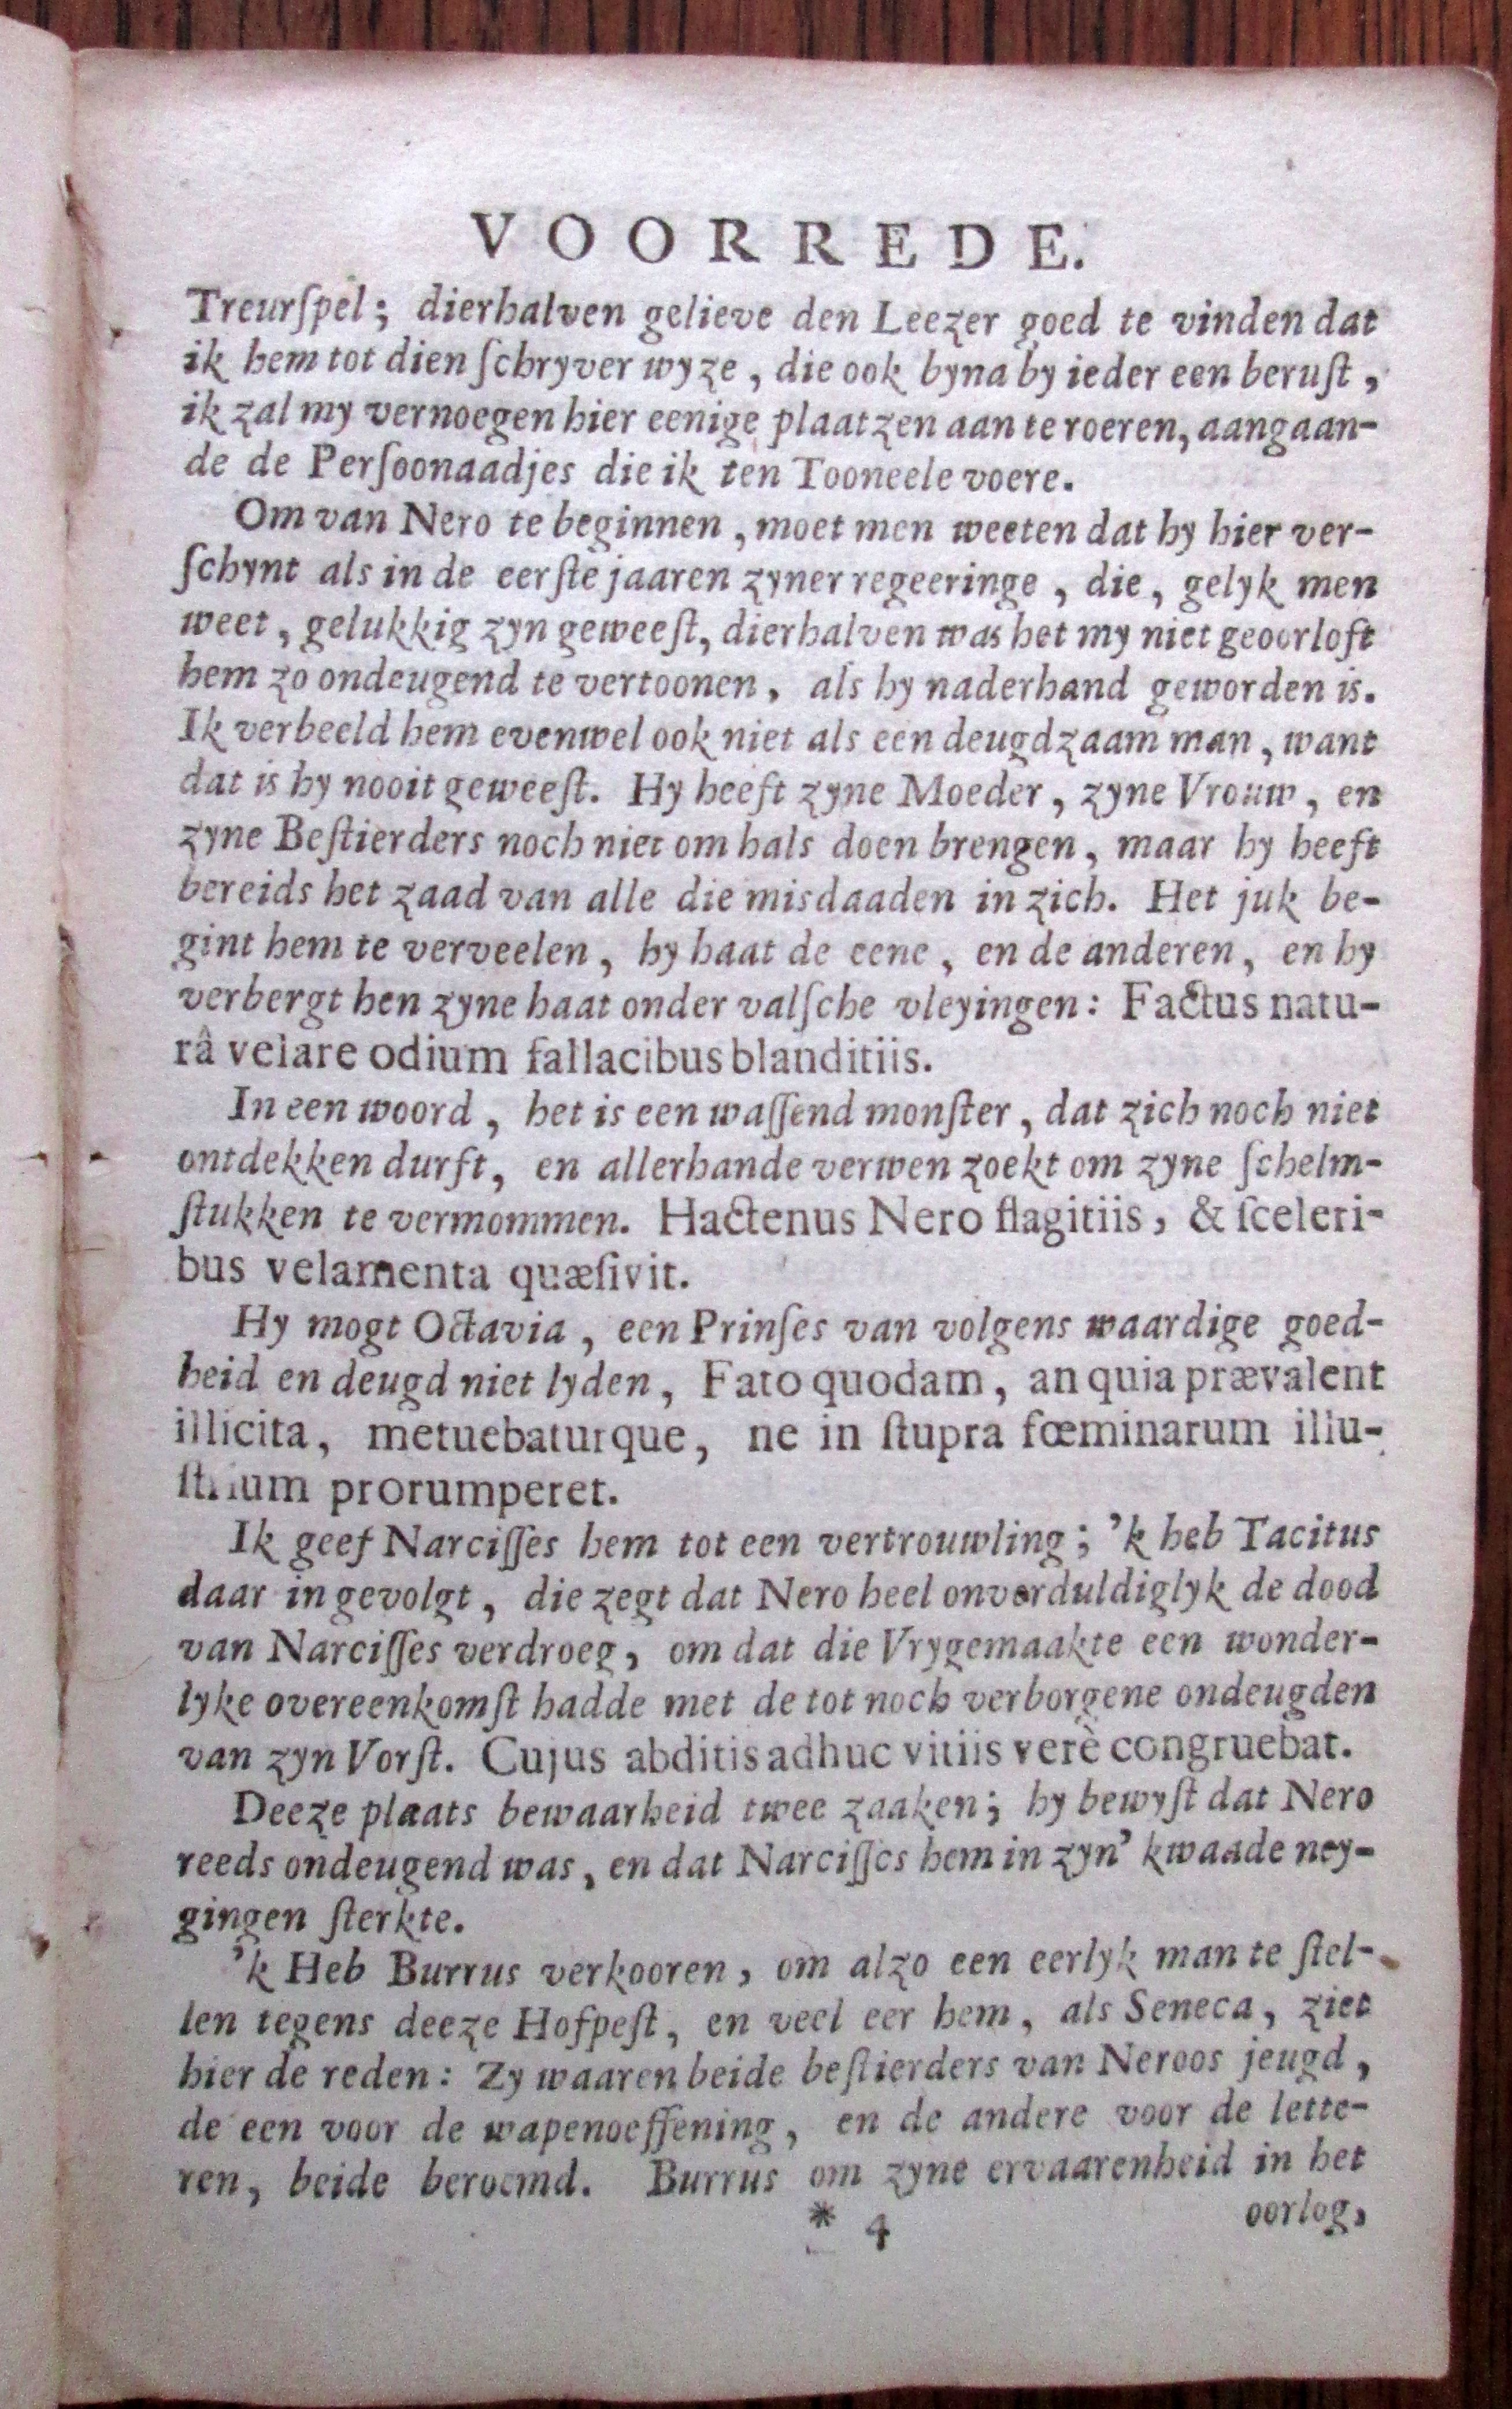 VOORREDE.
Treurſpel; dierhalven gelieve den Leezer goed te vinden dat
ik hem tot dien ſchryver wyze, die ook byna by ieder een beruſt,
ik zal my vernoegen hier eenige plaatzen aan te roeren, aangaan-
de de Perſoonaadjes die ik ten Tooneele voere.
Om van Nero te beginnen, moet men weeten dat hy hier ver-
ſchynt als in de eerſte jaaren zyner regeeringe, die, gelyk men
weet, gelukkig zyn geweeſt, dierhalven was het my niet geoorloft
hem zo ondeugend te vertoonen, als hy naderhand geworden is.
Ik verbeeld hem evenwel ook niet als een deugdzaam man, want
dat is hy nooit geweeſt. Hy heeft zyne Moeder, zyne Vrouw, en
zyne Beſtierders noch niet om hals doen brengen, maar hy heeft
bereids het zaad van alle die misdaaden in zich. Het juk be-
gint hem te verveelen, hy haat de eene, en de anderen, en hy
verbergt hen zyne haat onder valſche vleyingen: Factus natu-
râ velare odium fallacibus blanditiis.
In een woord, het is een waſſend monſter, dat zich noch niet
ontdekken durft, en allerhande verwen zoekt om zyne ſchelm-
ſtukken te vermommen. Hactenus Nero flagitiis, & ſceleri-
bus velamenta quæſivit.
Hy mogt Octavia, een Prinſes van volgens waardige goed-
heid en deugd niet lyden, Fato quodam, an quia prævalent
illicita, metuebaturque, ne in ſtupra fœminarum illu-
ſtrium prorumperet.
Ik geef Narciſſes hem tot een vertrouwling; 'k heb Tacitus
daar in gevolgt, die zegt dat Nero heel onverduldiglyk de dood
van Narciſſes verdroeg, om dat die Vrygemaakte een wonder-
lyke overeenkomſt hadde met de tot noch verborgene ondeugden
van zyn Vorſt. Cujus abditis adhuc vitiis verè congruebat.
Deeze plaats bewaarheid twee zaaken; hy bewyſt dat Nero
reeds ondeugend was, en dat Narciſſes hem in zyn' kwaade ney-
gingen ſterkte.
'k Heb Burrus verkooren, om alzo een eerlyk man te ſtel-
len tegens deeze Hofpeſt, en veel eer hem, als Seneca, ziet
hier de reden: Zy waaren beide beſtierders van Neroos jeugd,
de een voor de wapenoeffening, en de andere voor de lette-
ren, beide beroemd. Burrus om zyne ervaarenheid in het
* 4
oorlog,